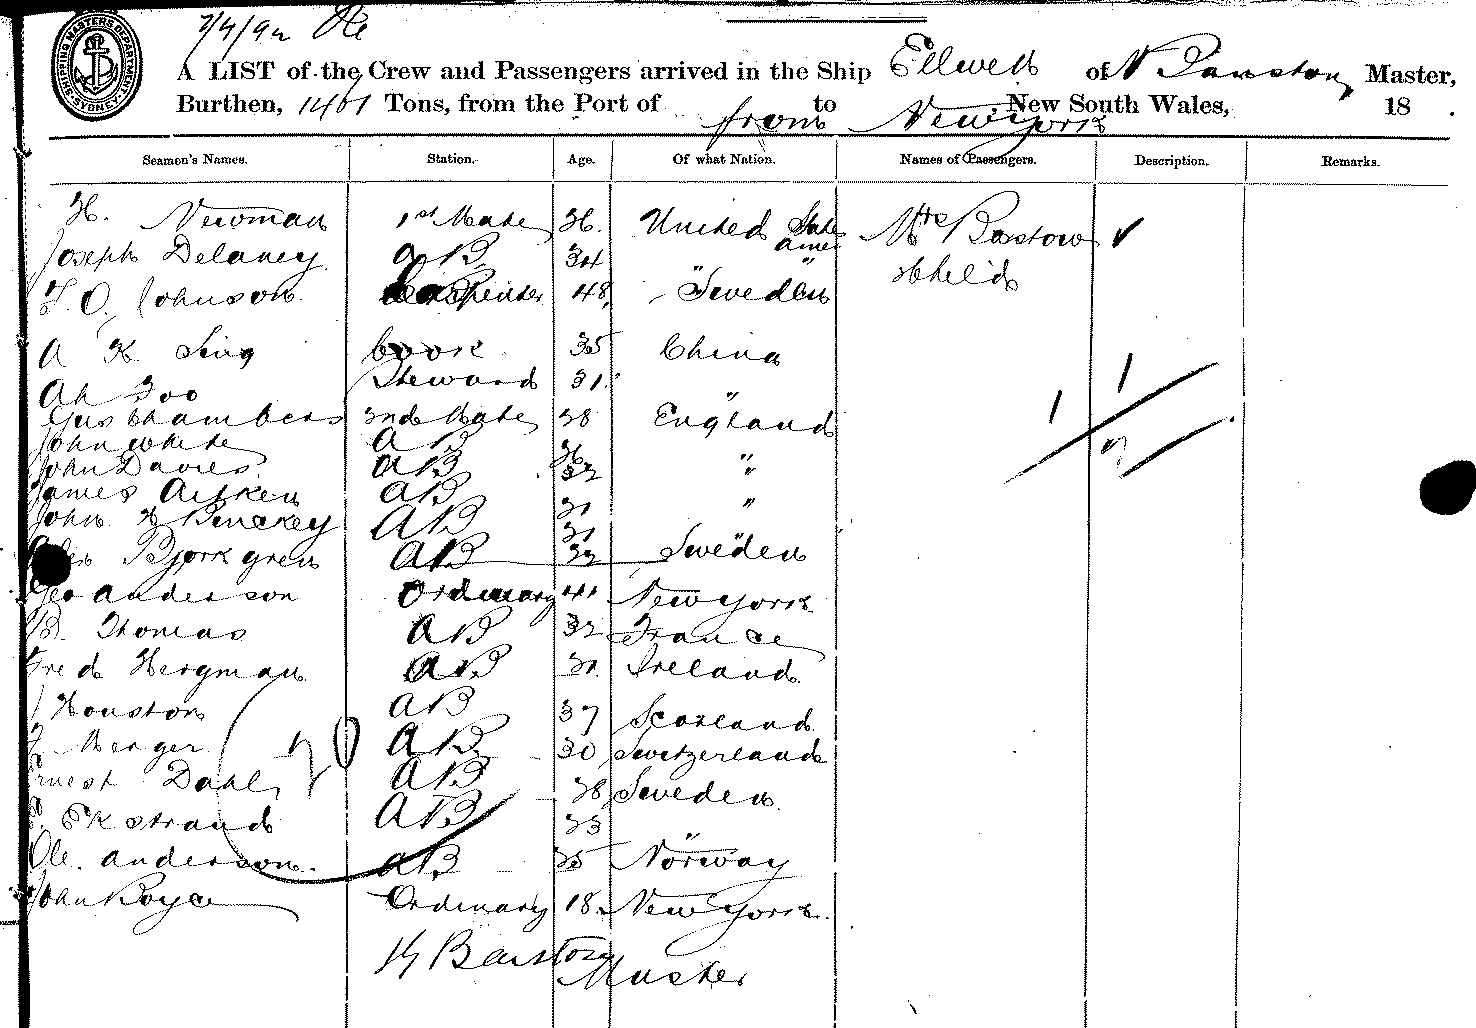 7/7/92
SHIPPING MASTERS DEPARTMENT SYDNEY
A LIST of the Crew and Passengers arrived in the Ship Ellwell of N Barstow, Master,
Burthen, 1461 Tons, from the Port of to New South Wales, 18
from New York
Seamen's Names. Station. Age. Of what Nation. Names of Passengers. Description. Remarks.
H. Newman 1st Mate 36. United States Amer Mrs Barstow
Joseph Delaney AB 34 " " & Child
F. O. Johnson Carpenter 48 Sweden
A K Sing Cook 35 China
Ah Foo Steward 31 "
Gus Chambers 2nd Mate 38 England
John White AB 36 "
John Davies AB 32 "
James Aitken AB 31 "
John H Binckey AB 31 "
Bjorkgren AB 32 Sweden
Geo Anderson Ordinary 41 New York
B. Thomas AB 32 France
Fred Hergman AB 31 Ireland
J Houston AB 37 Scotland
F Merger AB 30 Switzerland
Ernest Dahl AB 38 Sweden
F. Ekstrand AB 33 "
Ole Anderson AB 35 Norway
John Royce Ordinary 18 New York
Barstow
Master